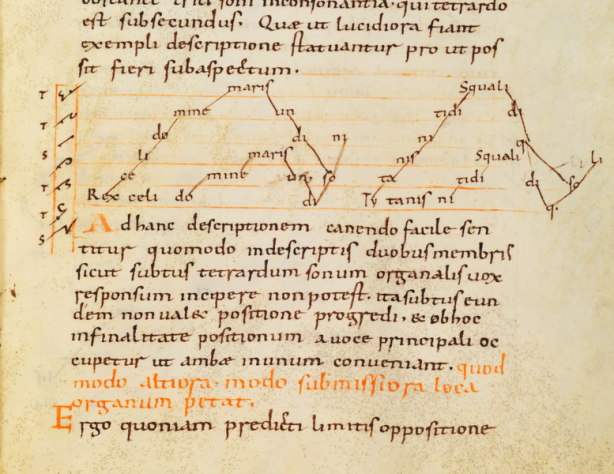 est subsecundus. Quæ ut lucidiora fiant
exempli descriptione statuantur pro ut pos
sit fieri subaspectum.
maris Squali
mine un tidi di
do di ni ni q
li maris nis Squali li
ce mine un so ta tidi di so
Rex celi do di Ty tanis ni q.
Ad hanc descriptionem canendo facile sen
titur quomodo indescriptis duobus membris
sicut subtus tetrardum sonum organalis uox
responsum incipere non potest. ita subtus eun
dem non ualet positione progredi. & ob hoc
infinalitate positionum a uoce principali oc
cupetur ut ambæ in unum conueniant. quod
modo altiora. modo submissiora loca
organum petat.
Ergo quoniam predicti limitis oppositione